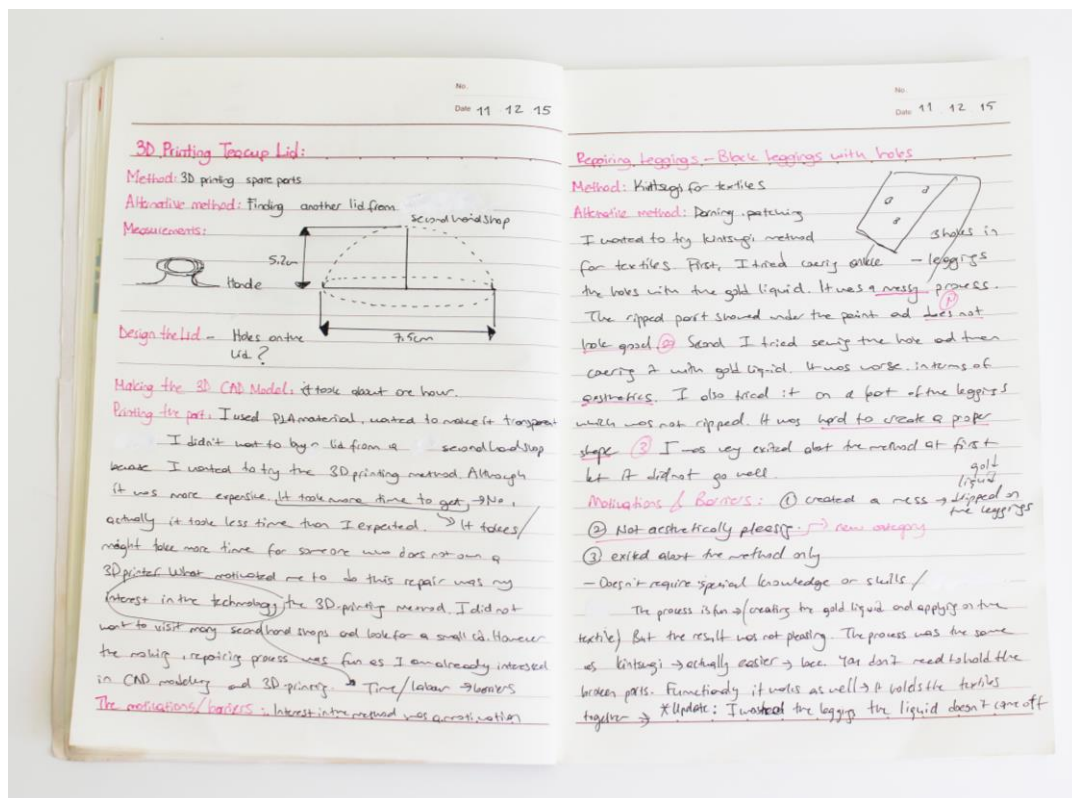 No.
Date 11 12 15
3D Printing Teacup Lid:
Method: 3D printing spare parts
Alternative method: Finding another lid from
second hand shop
Measurements:
5.2cm
Handle
7.5cm
Design the Lid - Holes on the
Lid ?
Making the 3D CAD Model: it took about one hour.
Printing the part: I used PLA material, wanted to make it transparent
I didn't want to buy a lid from a second hand shop
because I wanted to try the 3D printing method. Although
it was more expensive. It took more time to get, → No,
actually it took less time than I expected. → It takes/
might take more time for someone who does not own a
3D printer. What motivated me to do this repair was my
interest in the technology, the 3D-printing method. I did not
want to visit many second hand shops and look for a small lid. However
the making, repairing process was fun as I am already interested
in CAD modeling and 3D-printing. → Time/Labour → barriers
The motivations/barriers: Interest in the method was a motivation
No.
Date 11 12 15
Repairing Leggings - Black leggings with holes
Method: Kintsugi for textiles
Alternative method: Darning, patching
I wanted to try kintsugi method
3 holes in
for textiles. First, I tried coverig ankle - leggings
the holes with the gold liquid. It was a messy process. 1
The ripped part showed under the paint ad does not
look good 2 Second I tried sewing the hole ad then
coverig it with gold liquid. It was worse in terms of
aesthetics. I also tried it on a part of the leggings
which was not ripped. It was hard to create a proper
shape 3 I was very exited about the method at first
but it did not go well.
Motivations & Barriers: 1 created a mess → gold liquid dripped on the leggings
2 Not aesthetically pleasing. → new category
3 exited about the method only
- Doesn't require special knowledge or skills /
The process is fun → (creating the gold liquid and applying on the
textile) But the result was not pleasing. The process was the same
as kintsugi → actually easier → bcz. you don't need to hold the
broken parts. Functionally it works as well → it holds the textiles
together → *Update: I washed the legging the liquid doesn't come off